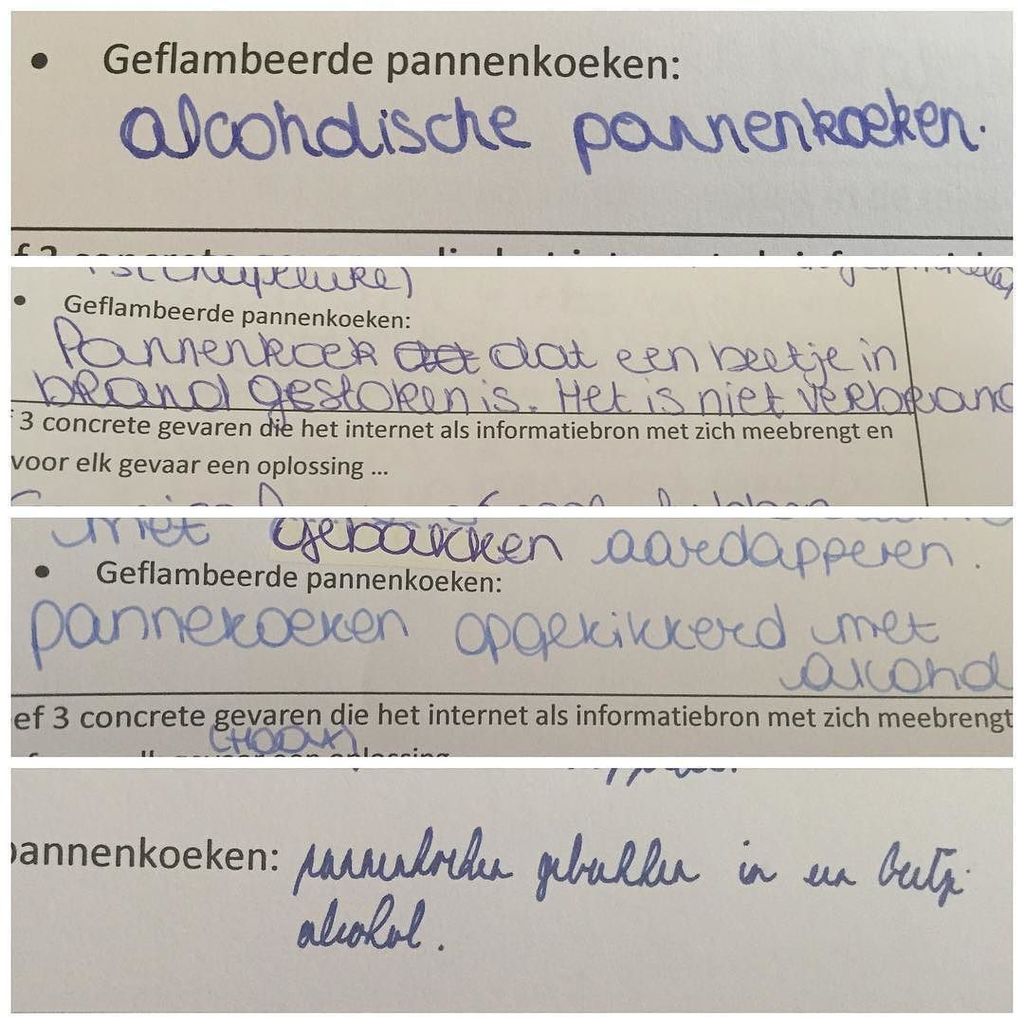 • Geflambeerde pannenkoeken:
alcohdische pannenkoeken.
• Geflambeerde pannenkoeken:
Pannenkoek dat een beetje in
brand gestoken is. Het is niet verbrand
3 concrete gevaren die het internet als informatiebron met zich meebrengt en
voor elk gevaar een oplossing ...
met gebakken aardapperen.
• Geflambeerde pannenkoeken:
pannekoeken opgekikkerd met
alcohol
ef 3 concrete gevaren die het internet als informatiebron met zich meebrengt
oplossing
pannenkoeken: pannenkoeken gebakken in een beetje
alcohol.